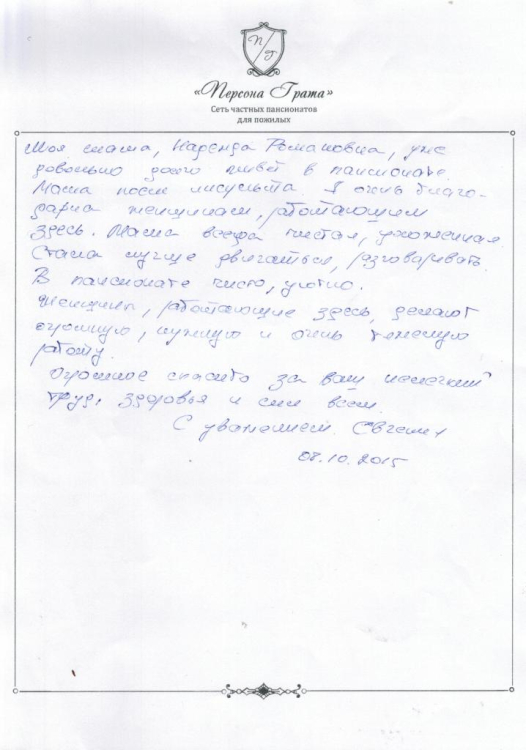 П
Г
«Персона Грата»
Сеть частных пансионатов
для пожилых
Моя мама, Надежда Романовна, уже
довольно долго живёт в пансионате.
Мама после инсульта. Я очень благо-
дарна женщинам, работающим
здесь. Мама всегда чистая, ухоженная.
Стала лучше двигаться, разговаривать.
В пансионате чисто, уютно.
Женщины, работающие здесь, делают
огромную, нужную и очень тяжелую
работу.
Огромное спасибо за ваш нелегкий
труд, здоровья и сил всем.
С уважением
10.2015